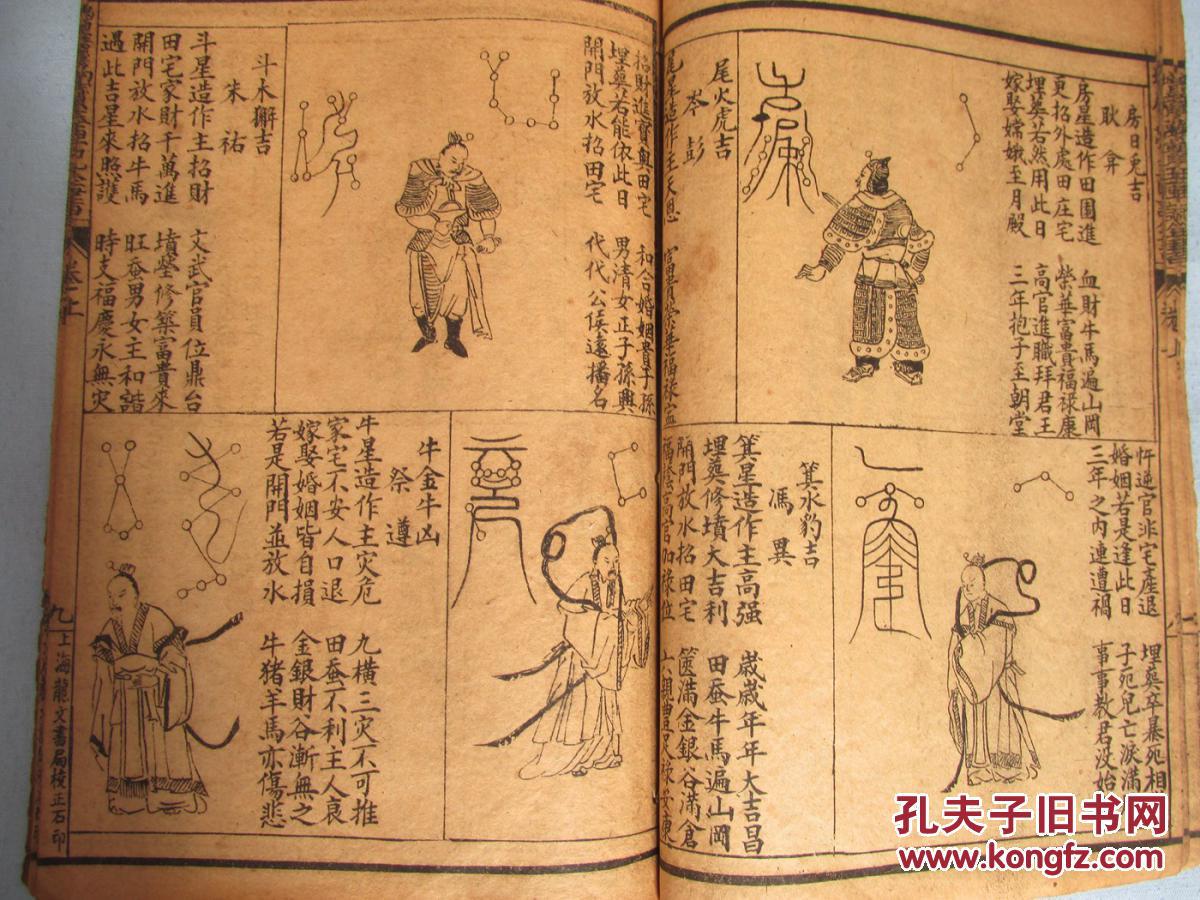 房日兔吉
耿弇
房星造作田園進　血財牛馬遍山岡
更招外處田庄宅　榮華富貴福祿康
埋葬若然用此日　高官進職拜君王
嫁娶嫦娥至月殿　三年抱子至朝堂
尾火虎吉
岑彭
尾星造作主天恩　富貴榮華福祿
忤逆官非宅產退　埋葬卒暴死相
婚姻若是逢此日　子死兒亡淚滿
三年之內連遭禍　事事教君沒始
箕水豹吉
馮異
箕星造作主高强　歲歲年年大吉昌
埋葬修墳大吉利　田蚕牛馬遍山岡
開門放水招田宅　篋滿金銀谷滿倉
福蔭高官加祿位　六親豐足
招財進寶興田宅　和合婚姻貴子孫
埋葬若能依此日　男清女正子孫興
開門放水招田宅　代代公侯遠播名
斗木獬吉
朱祐
斗星造作主招財　文武官員位鼎台
田宅家財千萬進　墳塋修築富貴來
開門放水招牛馬　旺蚕男女主和諧
遇此吉星來照護　時支福慶永無灾
牛金牛凶
祭遵
牛星造作主灾危　九橫三灾不可推
家宅不安人口退　田蚕不利主人哀
嫁娶婚姻皆自損　金銀財谷漸無之
若是開門並放水　牛猪羊馬亦傷悲
卷上
九
上海龍文書局校正石印
孔夫子旧书网
www.kongfz.com